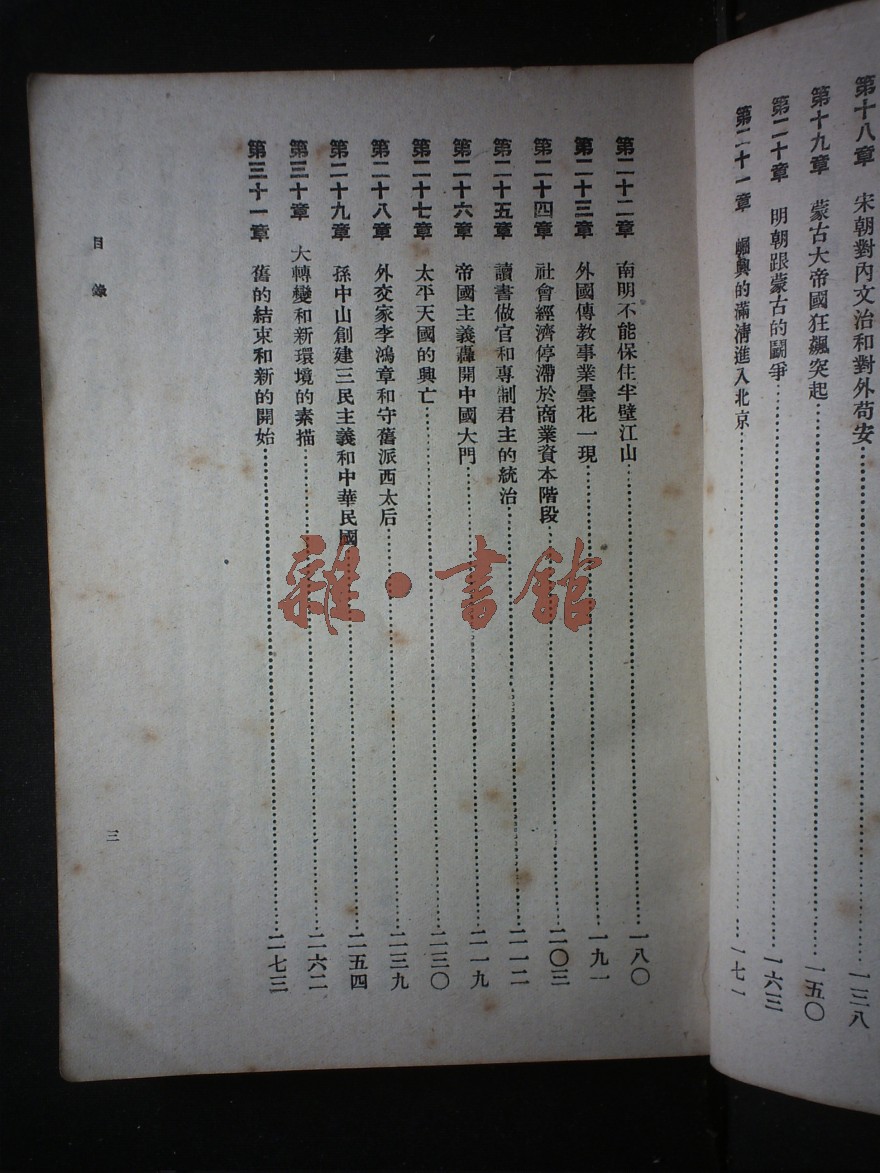 第十八章 宋朝對內文治和對外苟安……一三八
第十九章 蒙古大帝國狂飆突起……一五〇
第二十章 明朝跟蒙古的鬭爭……一六三
第二十一章 崛興的滿淸進入北京……一七一
第二十二章 南明不能保住半壁江山……一八〇
第二十三章 外國傳教事業曇花一現……一九一
第二十四章 社會經濟停滯於商業資本階段……二〇三
第二十五章 讀書做官和專制君主的統治……二一二
第二十六章 帝國主義轟開中國大門……二一九
第二十七章 太平天國的興亡……二三〇
第二十八章 外交家李鴻章和守舊派西太后……二三九
第二十九章 孫中山創建三民主義和中華民國……二五四
第三十章 大轉變和新環境的素描……二六二
第三十一章 舊的結束和新的開始……二七三
目錄
三
雜·書館